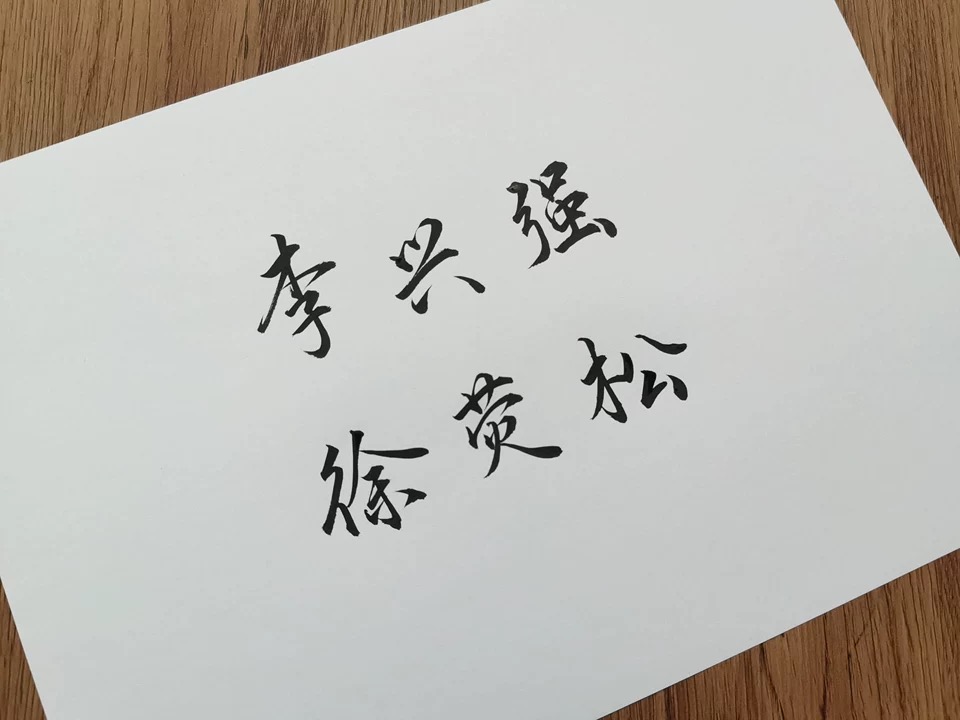 李兴强
徐荧松